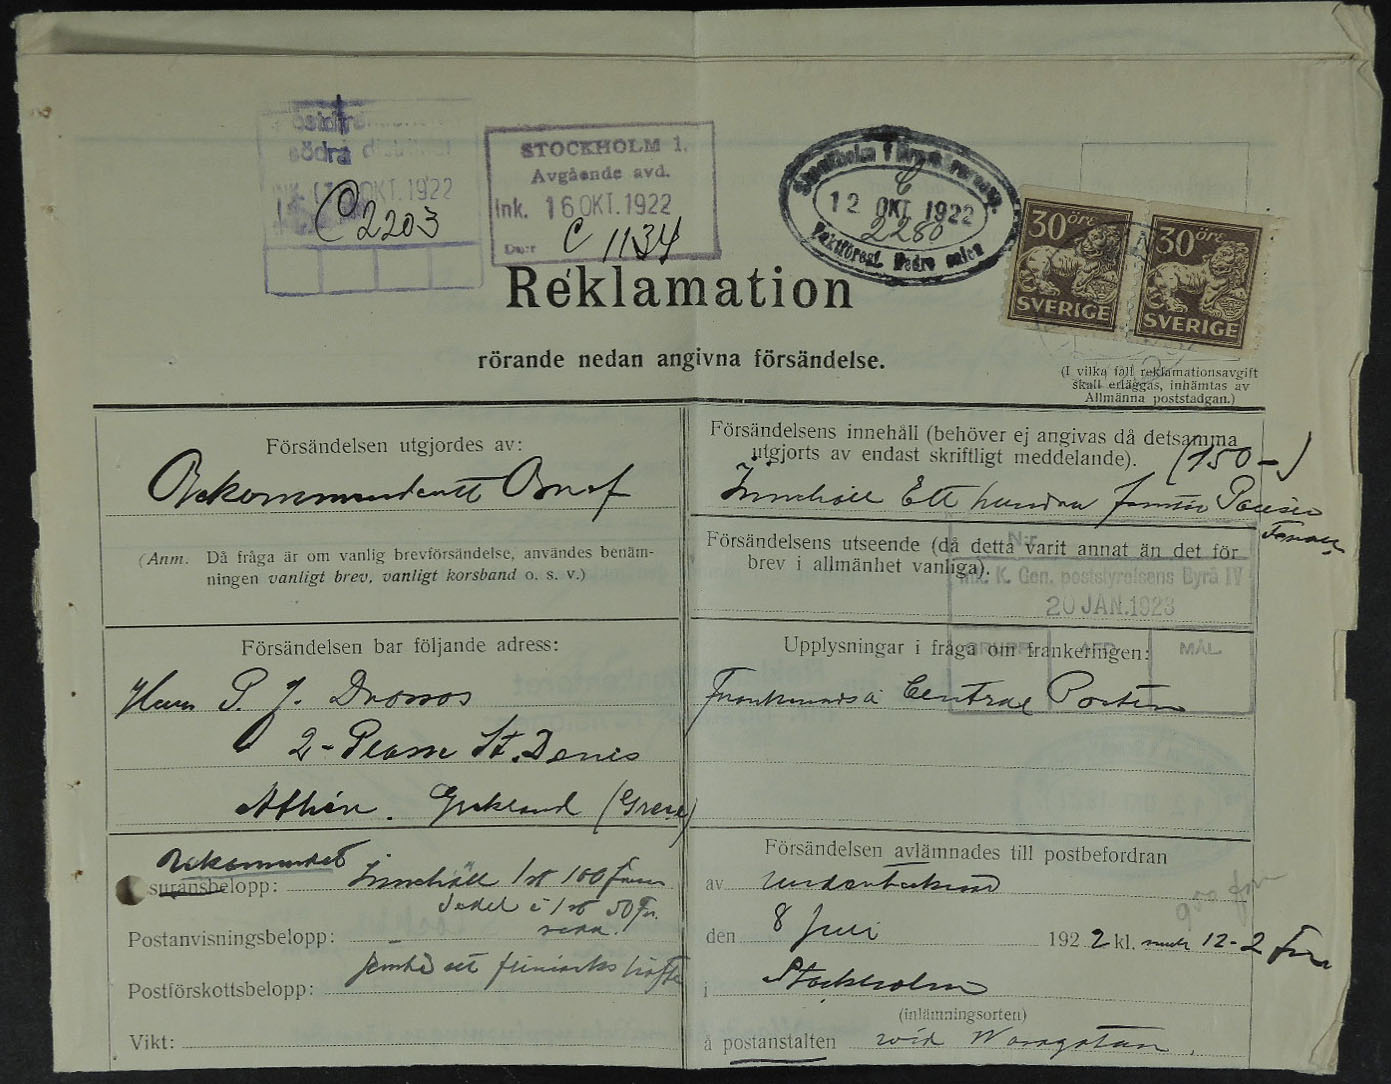 södra
OKT. 1922
C 2203
STOCKHOLM 1.
Avgående avd.
Ink. 16 OKT. 1922
C 1134
Stockholm 1
C
12 OKT 1922
2280
30 öre
SVERIGE
30 öre
SVERIGE
Reklamation
rörande nedan angivna försändelse.
(I vilka fall reklamationsavgift
skall erläggas, inhämtas av
Allmänna poststadgan.)
Försändelsen utgjordes av:
(Anm. Då fråga är om vanlig brevförsändelse, användes benäm-
ningen vanligt brev, vanligt korsband o. s. v.)
Försändelsens innehåll (behöver ej angivas då detsamma
utgjorts av endast skriftligt meddelande). (150-)
Innehåll Ett hundra femtio
Försändelsens utseende (då detta varit annat än det för
brev i allmänhet vanliga).
Nr
Ink. K. Gen. poststyrelsens Byrå IV
20 JAN. 1923
GRUPP AFD. MÅL.
Försändelsen bar följande adress:
Herr P. J. Drossos
2- St. Denis
Athén. Grekland
Upplysningar i fråga om frankeringen:
Centrae Posten
suransbelopp: Innehåll 1 st 100
Sedel 1 st 50 Fr.
Postanvisningsbelopp:
Postförskottsbelopp:
Vikt:
Försändelsen avlämnades till postbefordran
av undertecknad
den 8 Juli 1922 kl. 12-2
i Stockholm
(inlämningsorten)
å postanstalten vid